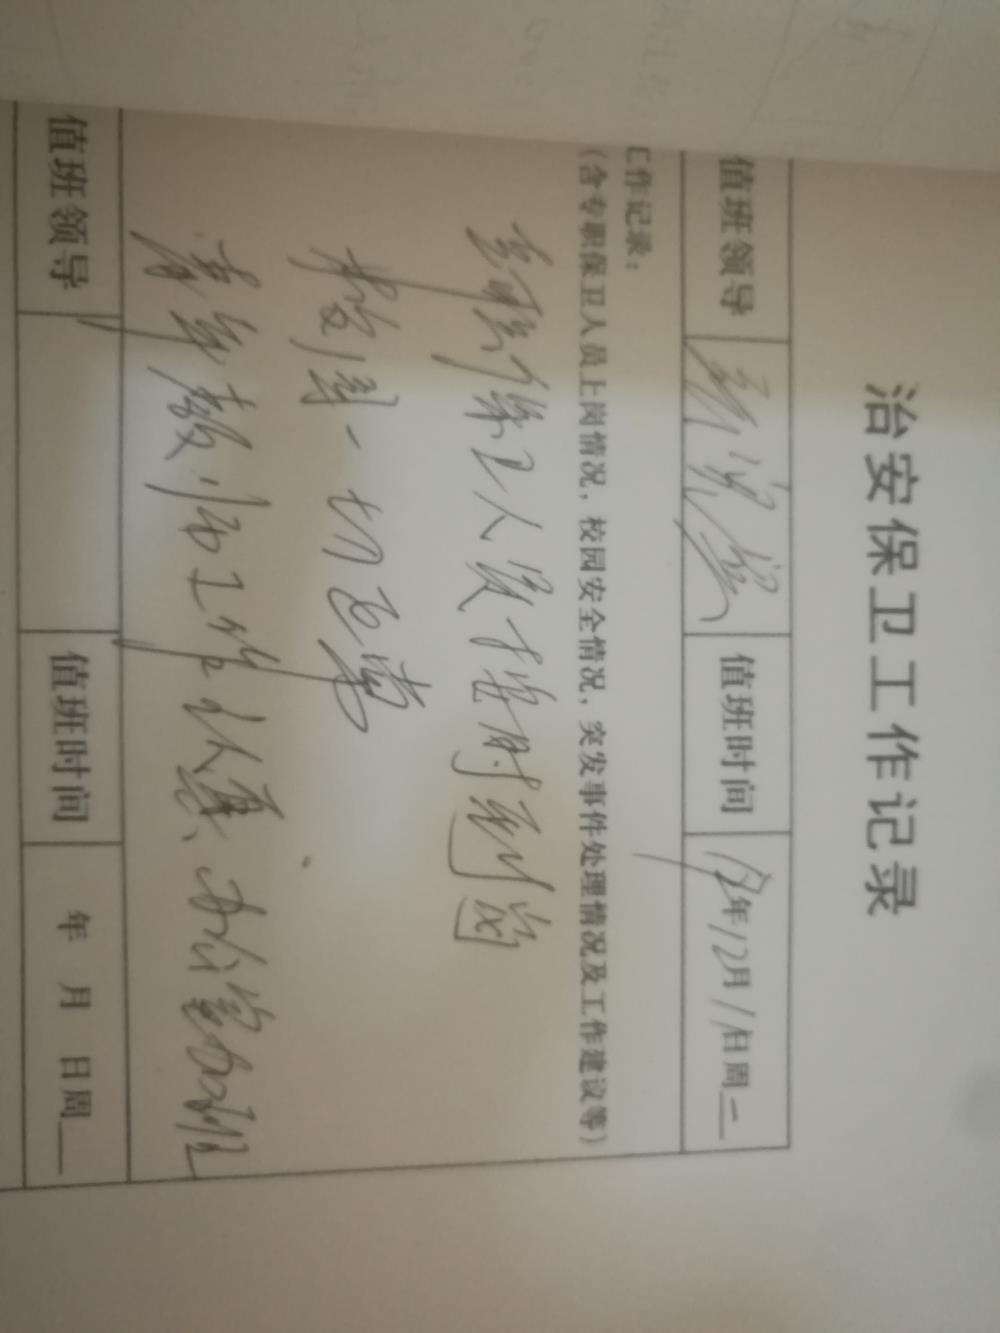 治安保卫工作记录
值班领导 值班时间 年12月1日周二
工作记录：
（含专职保卫人员上岗情况，校园安全情况，突发事件处理情况及工作建议等）
专职保卫人员按时到岗
校园一切正常
青年教师工作认真、
值班领导 值班时间 年 月 日周